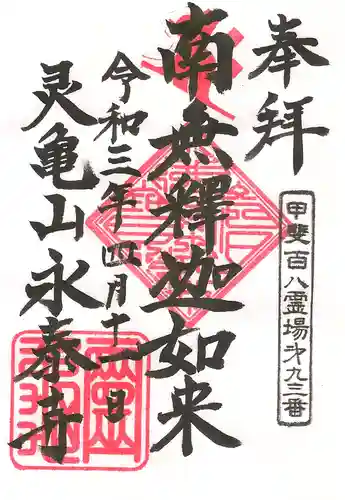 奉拝
甲斐百八霊場第九三番
南無釋迦如来
令和三年四月十一日
灵亀山永泰寺